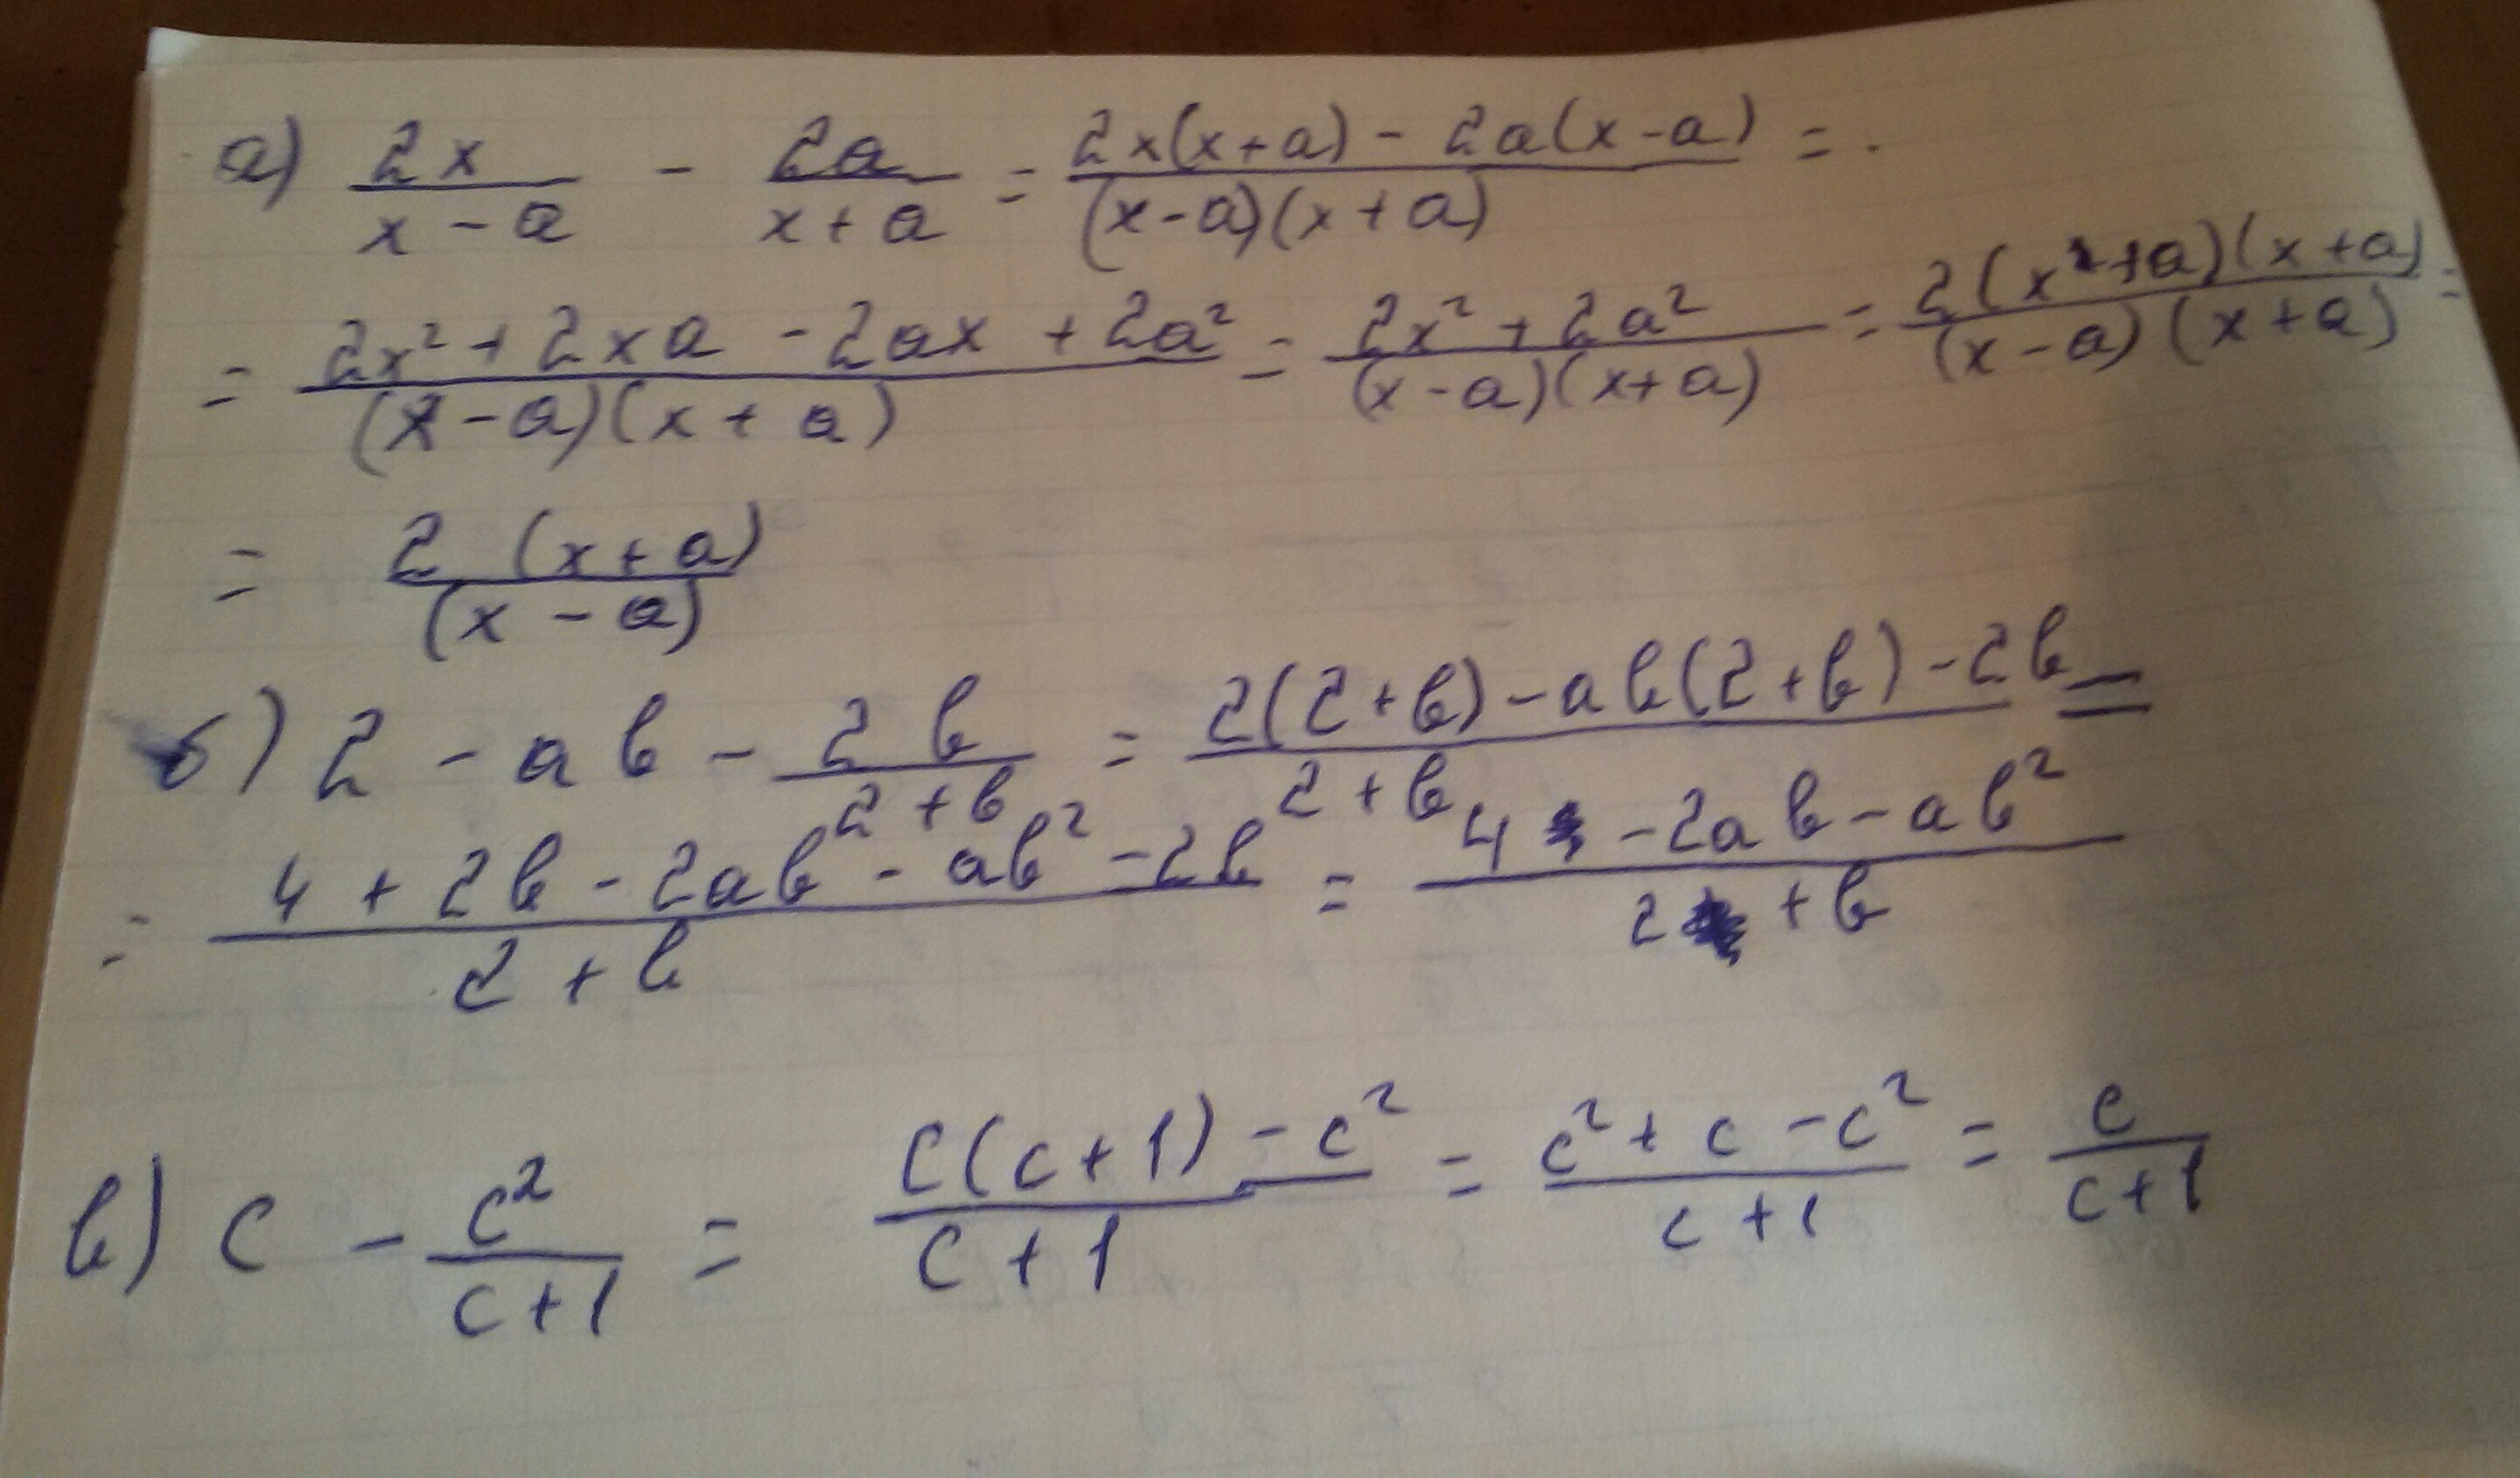 а) 2x/(x-a) - 2a/(x+a) = (2x(x+a) - 2a(x-a))/((x-a)(x+a)) =
= (2x² + 2xa - 2ax + 2a²)/((x-a)(x+a)) = (2x² + 2a²)/((x-a)(x+a)) = (2(x+a)(x+a))/((x-a)(x+a)) =
= (2(x+a))/((x-a))
б) 2 - ab - 2b/(2+b) = (2(2+b) - ab(2+b) - 2b)/(2+b) =
= (4 + 2b - 2ab - ab² - 2b)/(2+b) = (4 - 2ab - ab²)/(2+b)
в) c - c²/(c+1) = (c(c+1) - c²)/(c+1) = (c² + c - c²)/(c+1) = c/(c+1)